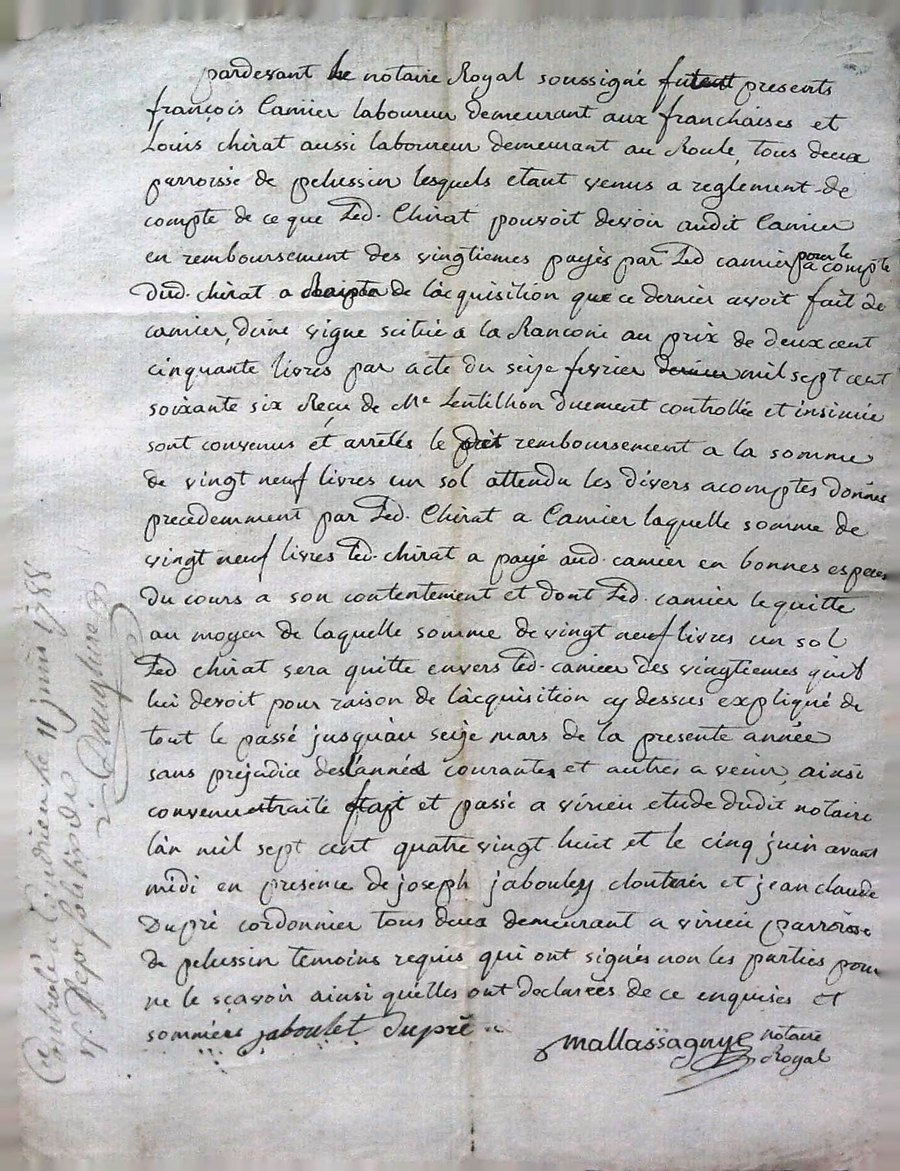 pardevant le notaire Royal soussigné furent presents
françois Camier laboureur demeurant aux franchaises et
Louis chirat aussi laboureur demeurant au Roule, tous deux
parroisse de pelussin lesquels etant venus a reglement de
compte de ce que Led. Chirat pouvoit devoir audit Camier
en remboursement des vingtiemes payés par Led camier pour le compte
dud. chirat a de l'acquisition que ce dernier avoit fait de
camier, d'une vigne scituée a la Ranconie au prix de deux cent
cinquante livres par acte du seize fevrier mil sept cent
soixante six Reçu de Me Lentilhon duement controllée et insinuée
sont convenus et arretés le dit remboursement a la somme
de vingt neuf livres un sol attendu les divers acomptes donnés
precedemment par Led. Chirat a Camier laquelle somme de
vingt neuf livres Led. chirat a payé aud. camier en bonnes especes
du cours a son contentement et dont Led. camier le quitte
au moyen de laquelle somme de vingt neuf livres un sol
Led chirat sera quitte envers Led. camier des vingtiemes qu'il
lui devoit pour raison de l'acquisition cy dessus expliqué de
tout le passé jusqu'au seize mars de la presente année
sans prejudice des l'années courantes et autres a venir ainsi
convenu et traité fait et passé a virieu etude dudit notaire
l'an mil sept cent quatre vingt huit et le cinq juin avant
midi en presence de joseph jabouley cloutier et jean claude
Dupré cordonnier tous deux demeurant a virieu parroisse
de pelussin temoins requis qui ont signés non les parties pour
ne le sçavoir ainsi qu'elles ont declarées de ce enquises et
sommées jaboulet dupré
mallassagnye notaire
Royal
Controlé a Condrieu le 11 juin 1788